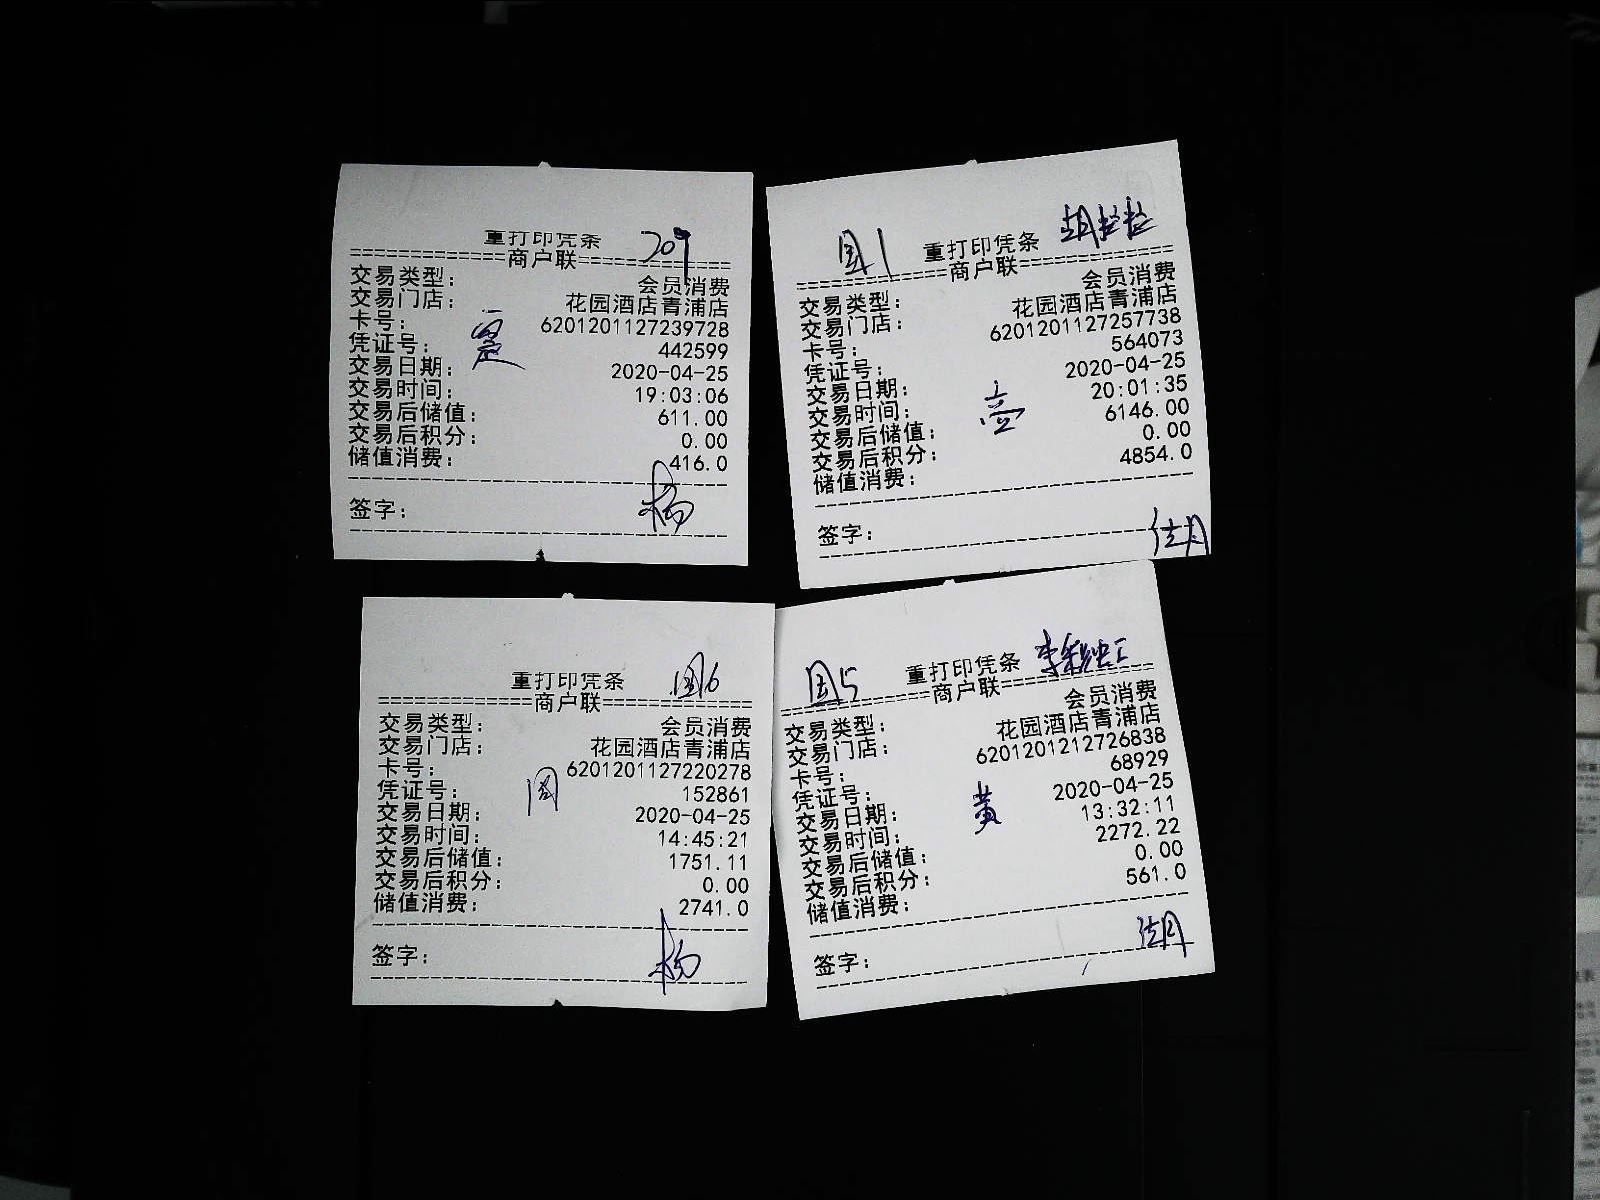 重打印凭条 709
============商户联============
交易类型： 会员消费
交易门店： 花园酒店青浦店
卡号： 6201201127239728
凭证号： 442599
交易日期： 2020-04-25
交易时间： 19:03:06
交易后储值： 611.00
交易后积分： 0.00
储值消费： 416.0
签字： 杨
国1 重打印凭条
============商户联============
交易类型： 会员消费
交易门店： 花园酒店青浦店
卡号： 6201201127257738
凭证号： 564073
交易日期： 2020-04-25
交易时间： 20:01:35
交易后储值： 6146.00
交易后积分： 0.00
储值消费： 4854.0
签字： 胡
重打印凭条 国6
============商户联============
交易类型： 会员消费
交易门店： 花园酒店青浦店
卡号： 6201201127220278
凭证号： 152861
周
交易日期： 2020-04-25
交易时间： 14:45:21
交易后储值： 1751.11
交易后积分： 0.00
储值消费： 2741.0
签字： 杨
国5 重打印凭条
============商户联============
交易类型： 会员消费
交易门店： 花园酒店青浦店
卡号： 6201201212726838
凭证号： 68929
交易日期： 2020-04-25
黄
交易时间： 13:32:11
交易后储值： 2272.22
交易后积分： 0.00
储值消费： 561.0
签字： 胡